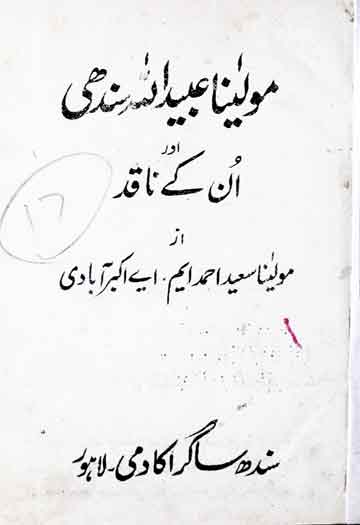 مولیٰنا عبید اللہ سندھی
اور
اُن کے ناقد
۱۶
از
مولیٰنا سعید احمد ایم۔ اے اکبر آبادی
سندھ ساگر اکادمی۔ لاہور